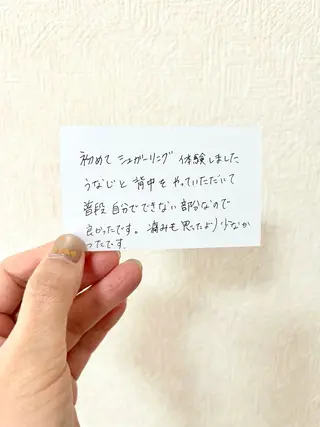 初めて シュガーリング 体験しました
うなじと 背中を やっていただいて
普段 自分でできない 部分なので
良かったです。 痛みも 思ったより少なか
ったです。